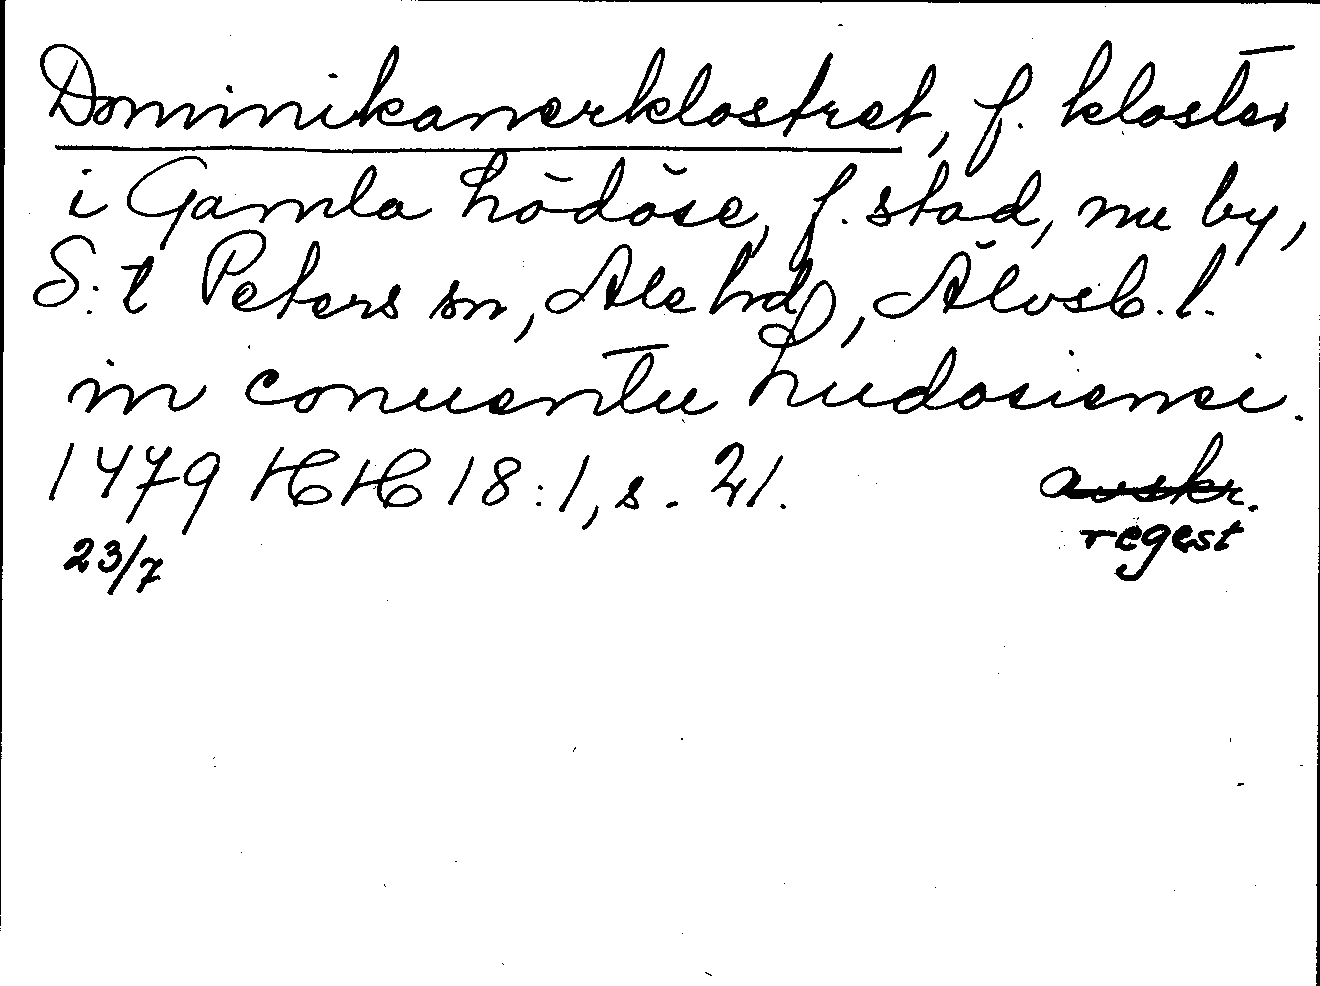 Dominikanerklostret, f. kloster
i Gamla Lödöse, f. stad, nu by,
S:t Peters sn, Ale hd, Älvsb. l.
in conuentu Ludosiensi.
1479 HH 18:1, s. 21. avskr.
regest
23/7